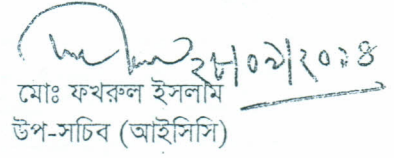 ২৮/০৯/২০১৪
মোঃ ফখরুল ইসলাম
উপ-সচিব (আইসিসি)